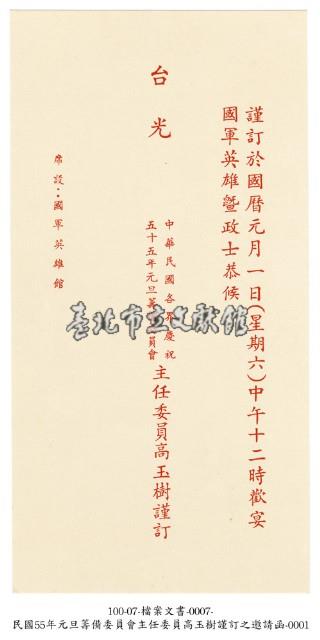 謹訂於國曆元月一日(星期六)中午十二時歡宴
國軍英雄暨政士恭候
台光
中華民國各界慶祝
五十五年元旦籌備委員會
主任委員高玉樹謹訂
席設：國軍英雄館
臺北市立文獻館
100-07-檔案文書-0007-
民國55年元旦籌備委員會主任委員高玉樹謹訂之邀請函-0001